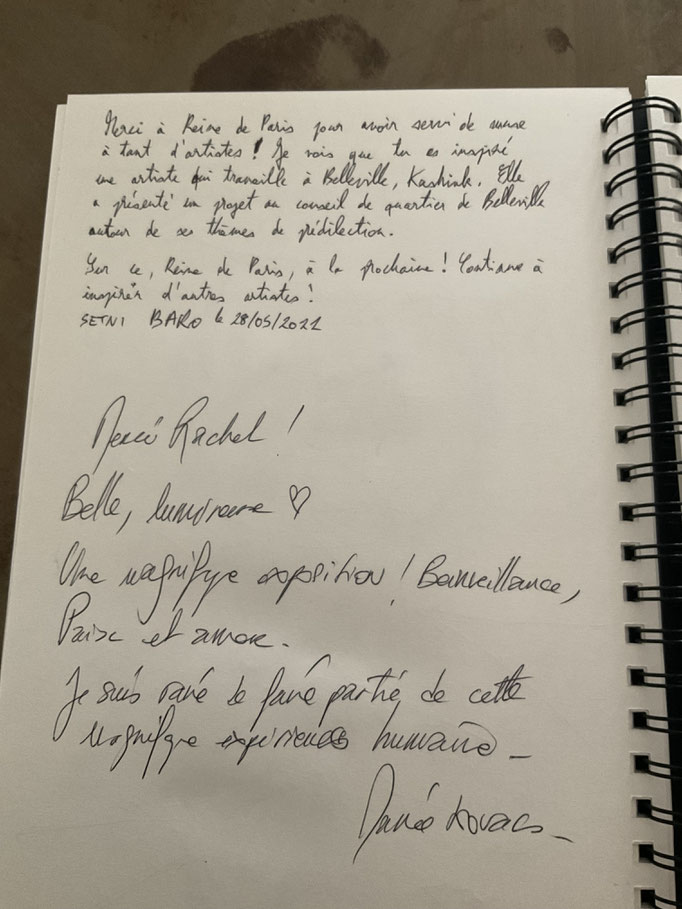 Merci à Reine de Paris pour avoir servi de muse
à tant d'artistes ! Je vois que tu as inspiré
une artiste qui travaille à Belleville, Kashink. Elle
a présenté un projet au conseil de quartier de Belleville
autour de ses thèmes de prédilection.
Sur ce, Reine de Paris, à la prochaine ! Continue à
inspirer d'autres artistes !
SETNI BARO le 28/05/2022
Merci Rachel !
Belle, lumineuse ♡
Une magnifique exposition ! Bienveillance,
Paix et amour.
Je suis ravie de faire partie de cette
magnifique expérience humaine _
Kovacs _